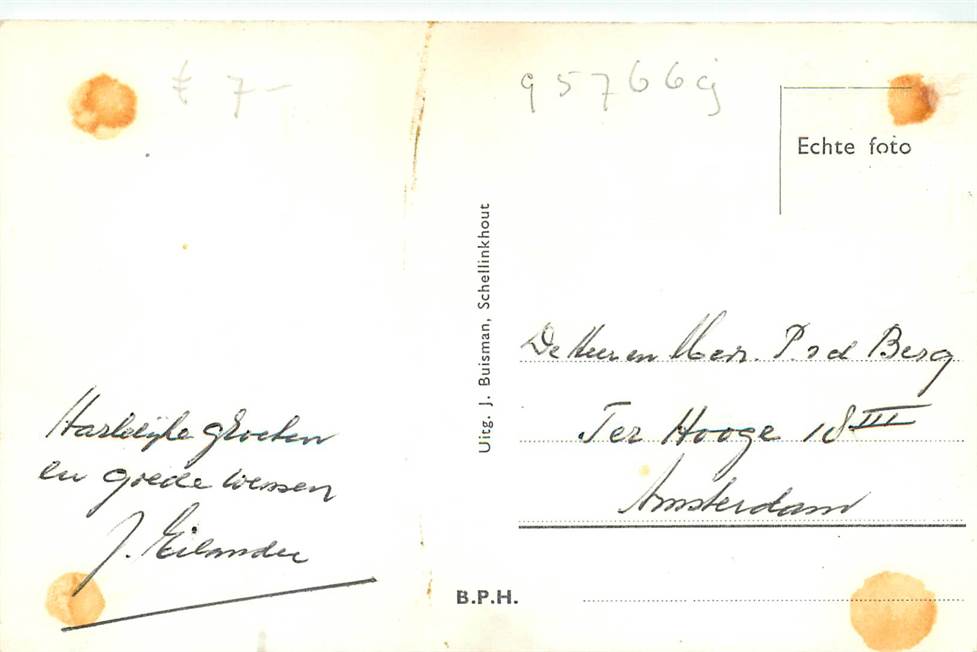 £ 7-
95766g
Echte foto
Uitg. J. Buisman, Schellinkhout
De Heer en Mev. P. v d Berg
Ter Hooge 18 III
Amsterdam
Hartelijke groeten
en goede wensen
J. Eilander
B.P.H.